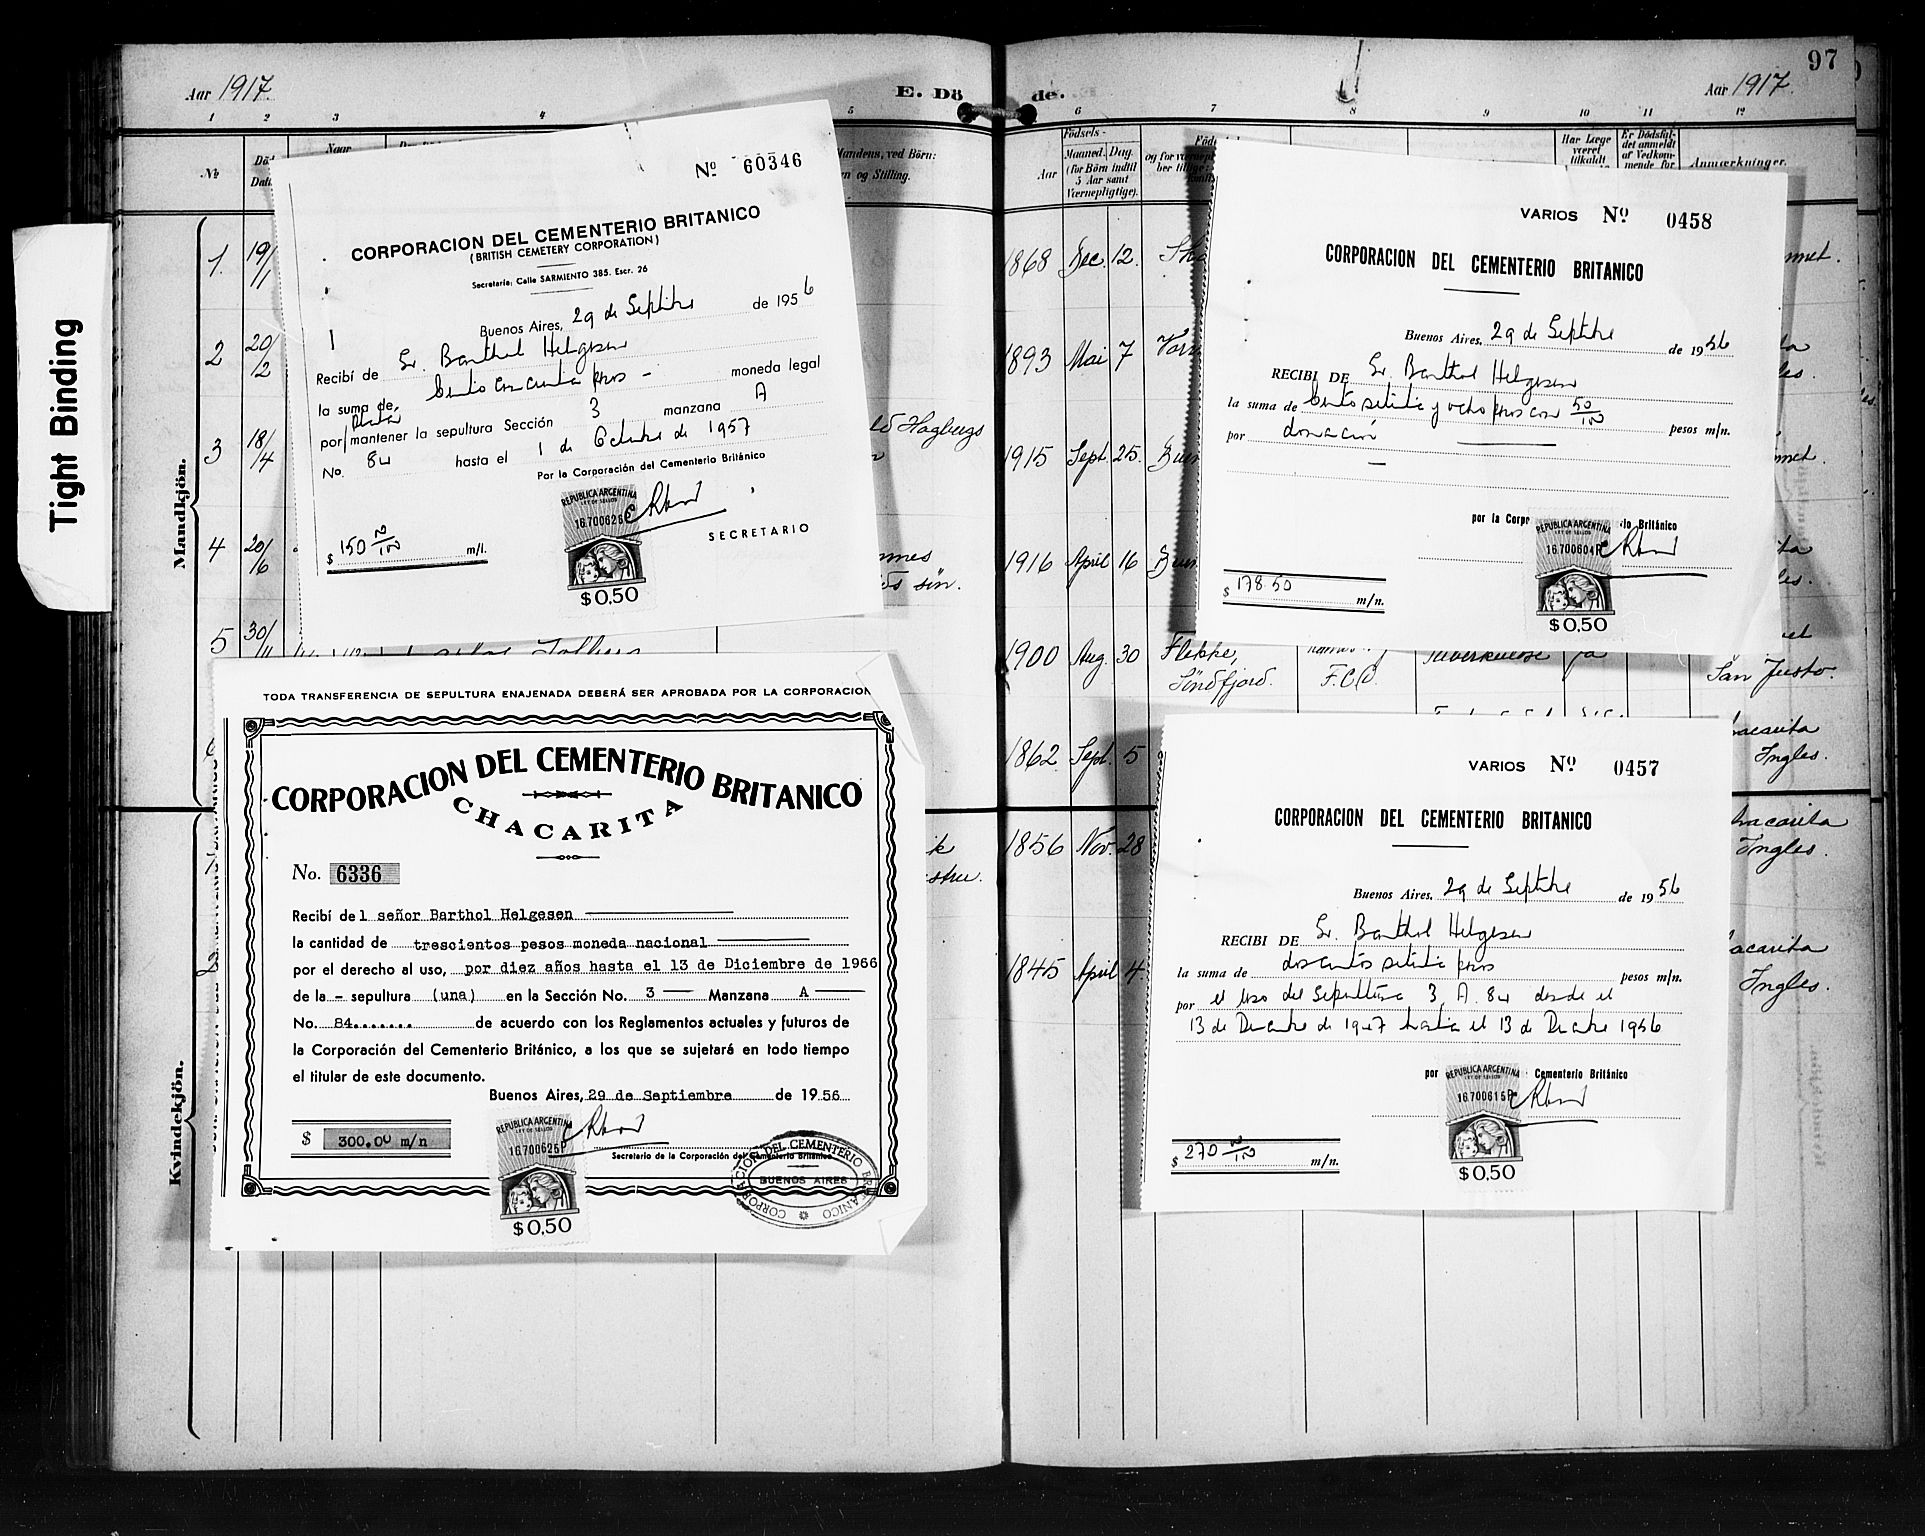 Aar 1917.
E. Dö de.
Aar 1917.
97
1 2 3 4 5 6 7 8 9 10 11 12
Tight Binding
№
Naar
Mandens, ved Börn:
og Stilling.
Aar
Födsels-
Maaned. Dag.
(for Börn indtil
5 Aar samt
Værnepligtige).
Har Læge
været
tilkaldt
Er Dödsfal-
det anmeldt
af Vedkom-
mende for
Anmærkninger.
Mandkjön.
Kvindekjön.
1. 19/1
2 20/2
3 18/4
4 20/6
5 30/11
Hagbergs
sin.
1868 Dec. 12.
1893 Mai 7
1915 Sept. 25.
1916 April 16
1900 Aug. 30 Flekke,
Söndfjord.
F.C.O.
Tuberkulose ja
San Justo.
1862 Sept. 5
Ingles.
1856 Nov. 28
Ingles.
1845 April 4.
Ingles.
Nº 60346
CORPORACION DEL CEMENTERIO BRITANICO
(BRITISH CEMETERY CORPORATION)
Secretaria: Calle SARMIENTO 385. Escr. 26
Buenos Aires, 29 de Septbre de 1956
Recibí de Sr. Barthol Helgesen
la suma de Ciento cincuenta pesos - moneda legal
por mantener la sepultura Sección 3 manzana A
No. 84 hasta el 1 de Octubre de 1957
Por la Corporación del Cementerio Británico
REPUBLICA ARGENTINA
LEY DE SELLOS
16.700626P
SECRETARIO
$ 150 00/100 m/l.
$0,50
VARIOS Nº 0458
CORPORACION DEL CEMENTERIO BRITANICO
Buenos Aires, 29 de Septbre de 1956
RECIBI DE Sr. Barthol Helgesen
la suma de Ciento setenta y ocho pesos con 50/100 pesos m/n.
por donación
por la Corpr lo Británico
REPUBLICA ARGENTINA
LEY DE SELLOS
16.700604P
$ 178.50 m/n.
$0,50
TODA TRANSFERENCIA DE SEPULTURA ENAJENADA DEBERÁ SER APROBADA POR LA CORPORACION
CORPORACION DEL CEMENTERIO BRITANICO
CHACARITA
No. 6336
Recibí de l señor Barthol Helgesen
la cantidad de trescientos pesos moneda nacional
por el derecho al uso, por diez años hasta el 13 de Diciembre de 1966
de la - sepultura (una) en la Sección No. 3 Manzana A
No. 84....... de acuerdo con los Reglamentos actuales y futuros de
la Corporación del Cementerio Británico, a los que se sujetará en todo tiempo
el titular de este documento.
Buenos Aires, 29 de Septiembre de 19 56
$ 300.00 m/n
REPUBLICA ARGENTINA
LEY DE SELLOS
16.700625P
Secretario de la Corporación del Cementerio Británico
CORPORACION DEL CEMENTERIO BRITANICO
BUENOS AIRES
$0,50
VARIOS Nº 0457
CORPORACION DEL CEMENTERIO BRITANICO
Buenos Aires, 29 de Septbre de 1956
RECIBI DE Sr. Barthol Helgesen
la suma de doscientos setenta pesos pesos m/n.
por el uso del Sepultura 3 A 84 desde el
13 de Dicembre de 1947 hasta el 13 de Dicbre 1956
por Cementerio Británico
REPUBLICA ARGENTINA
LEY DE SELLOS
16.700615P
$ 270 00/100 m/n.
$0,50